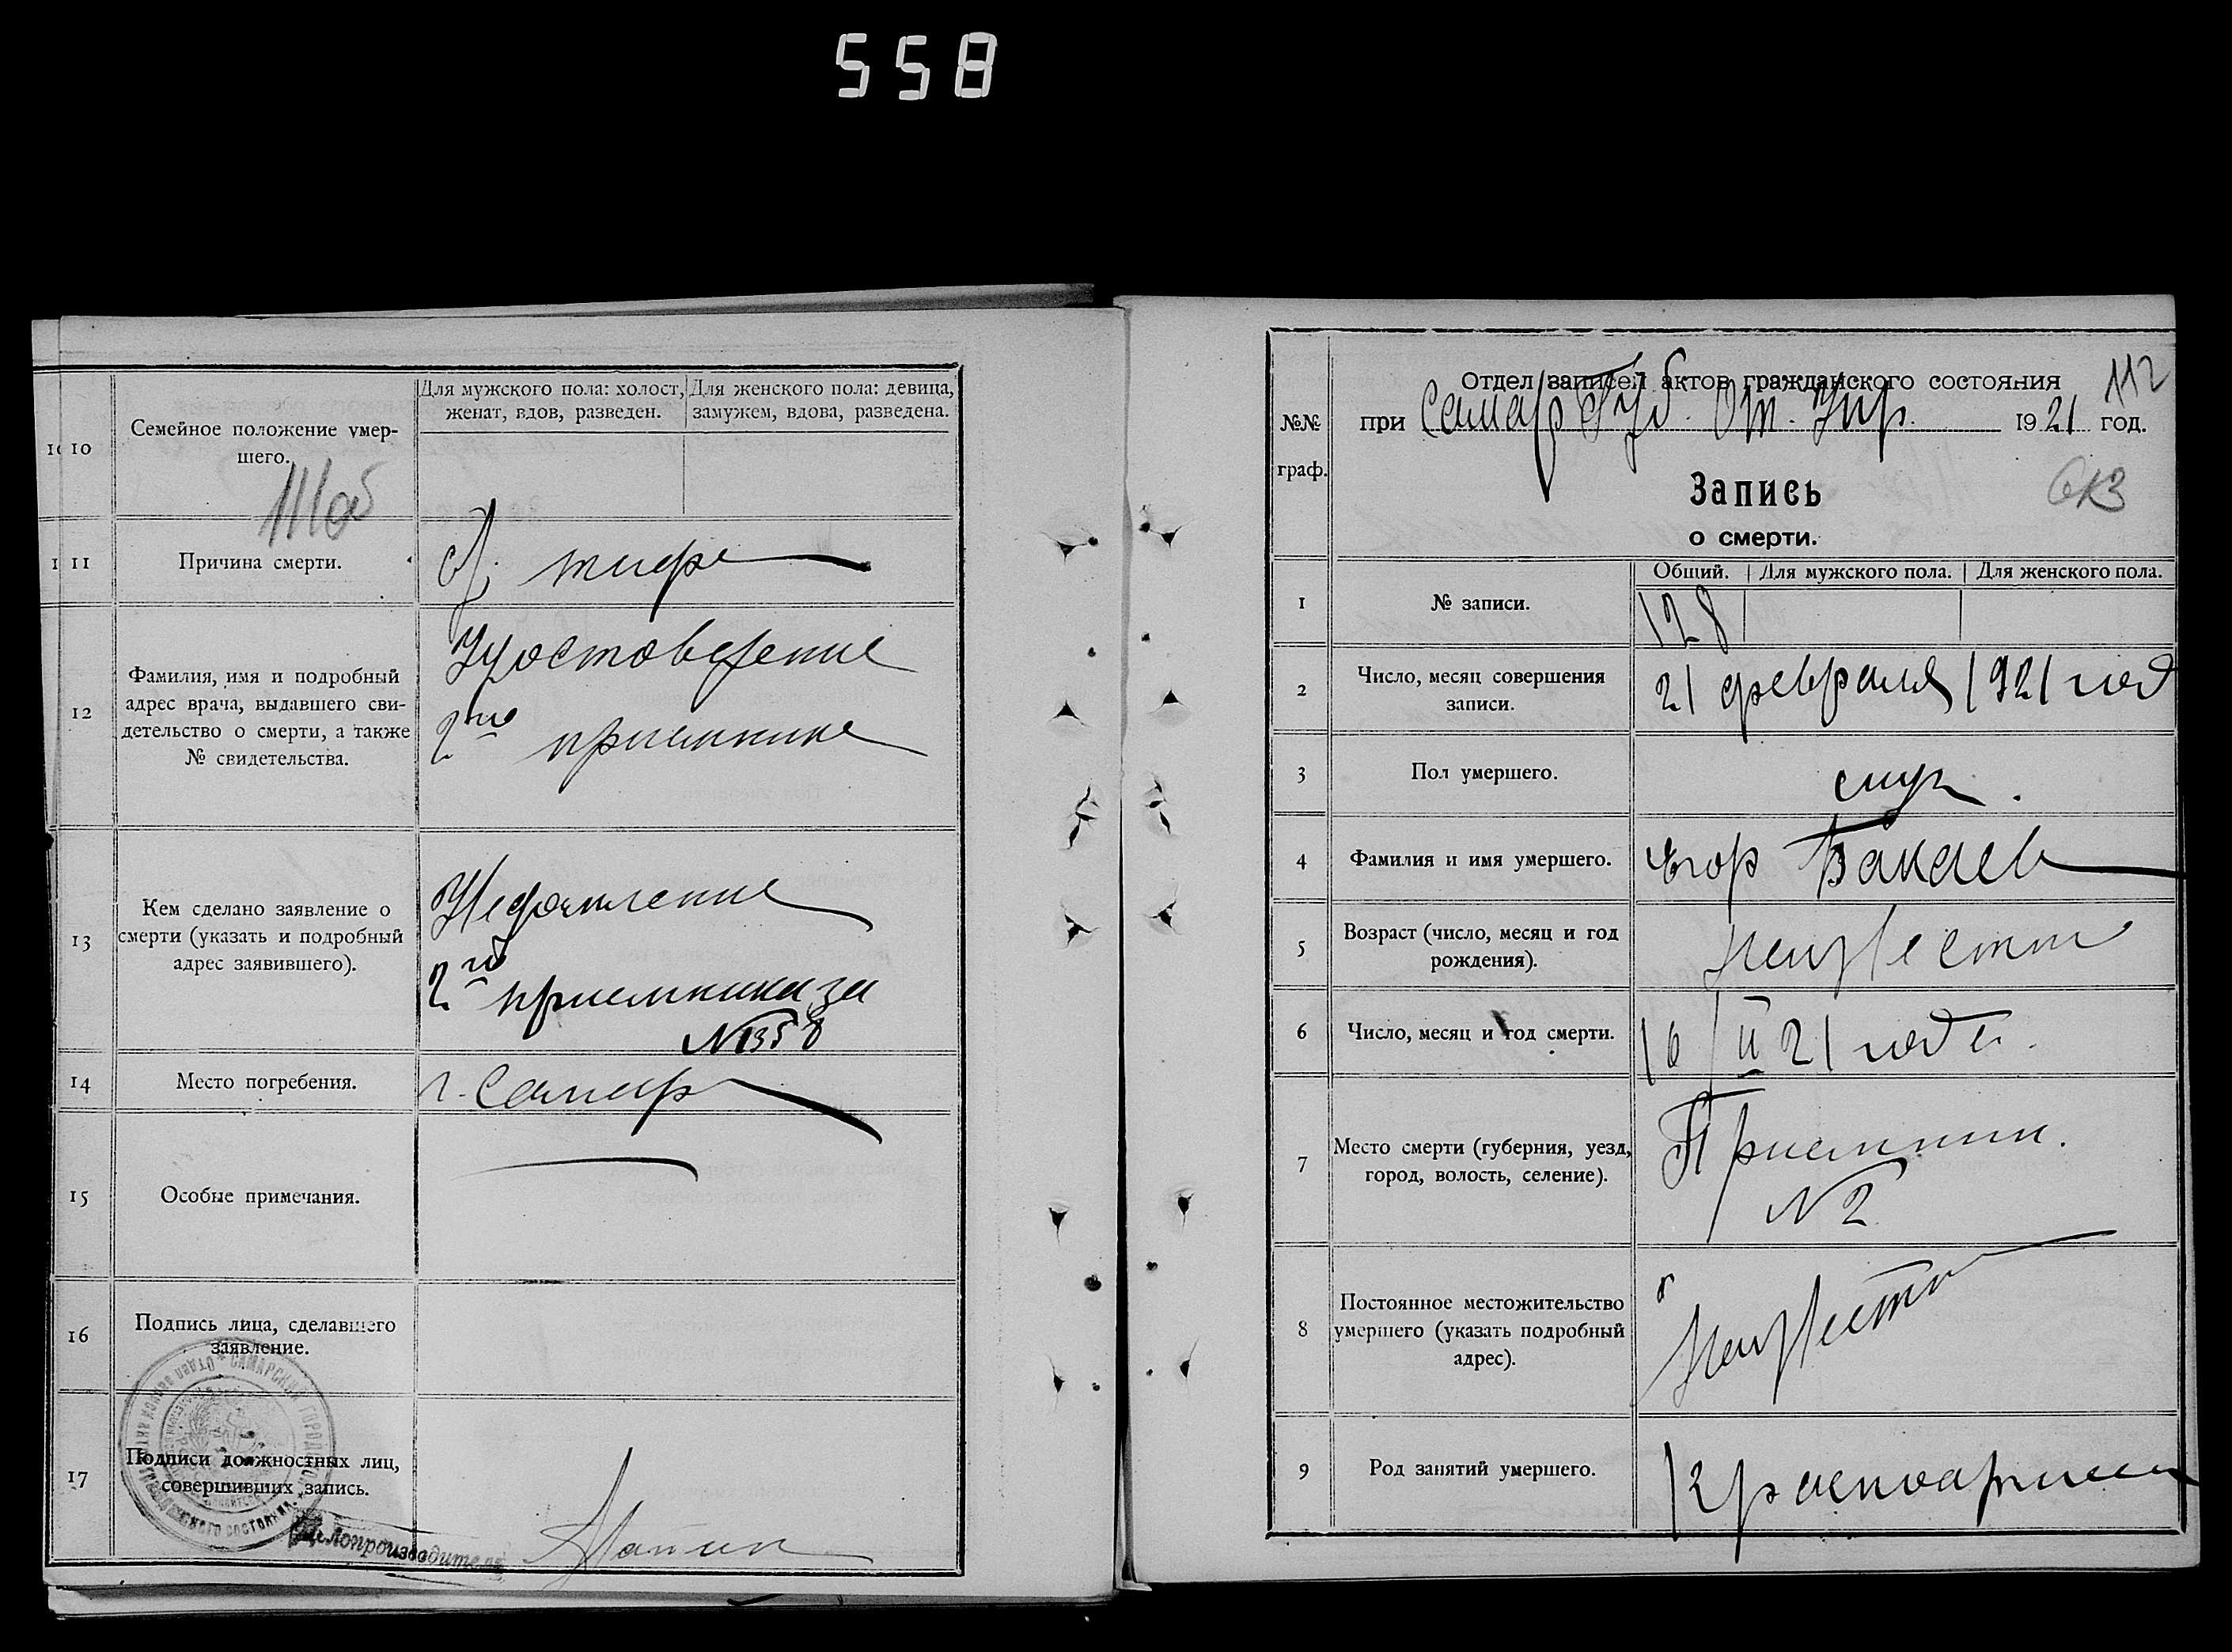 558
10 10
Семейное положение умер-
шего.
Для мужского пола: холост,
женат, вдов, разведен.
Для женского пола: девица,
замужем, вдова, разведена.
1 11
Причина смерти.
тифа
12
Фамилия, имя и подробный
адрес врача, выдавшего сви-
детельство о смерти, а также
№ свидетельства.
Удостоверение
2го приемника
13
Кем сделано заявление о
смерти (указать и подробный
адрес заявившего).
Уведомление
2го приемника за
N 1358
14
Место погребения.
г. Самар
15
Особые примечания.
16
Подпись лица, сделавшего
заявление.
17
Подписи должностных лиц,
совершивших запись.
Делопроизводитель
№№
граф.
Отдел записей актов гражданского состояния
112
при Самар Губ. От. Упр. 1921 год.
Запись
о смерти.
Общий. Для мужского пола. Для женского пола.
1
№ записи.
128
2
Число, месяц совершения
записи.
21 февраля 1921 год
3
Пол умершего.
муж.
4
Фамилия и имя умершего.
Егор Бакаев
5
Возраст (число, месяц и год
рождения).
неизвестно
6
Число, месяц и год смерти.
16/II 21 года.
7
Место смерти (губерния, уезд,
город, волость, селение).
Приемник.
N 2
8
Постоянное местожительство
умершего (указать подробный
адрес).
неизвестно
9
Род занятий умершего.
Красноармеец